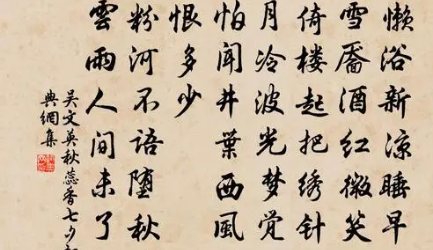 懒浴新凉睡早
雪靥酒红微笑
倚楼起把绣针
月冷波光梦觉
怕闻井葉西風
恨多少
粉河不语堕秋
雲雨人间未了
吴文英秋蕊香七夕
典網集